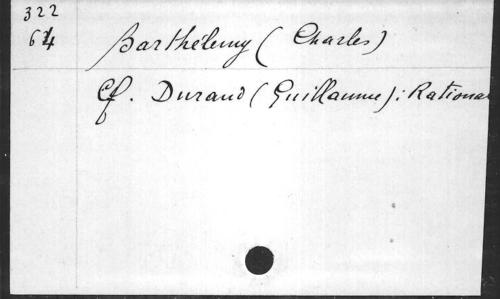 322
64
Barthélemy (Charles)
Cf. Durand (Guillaume): Rational